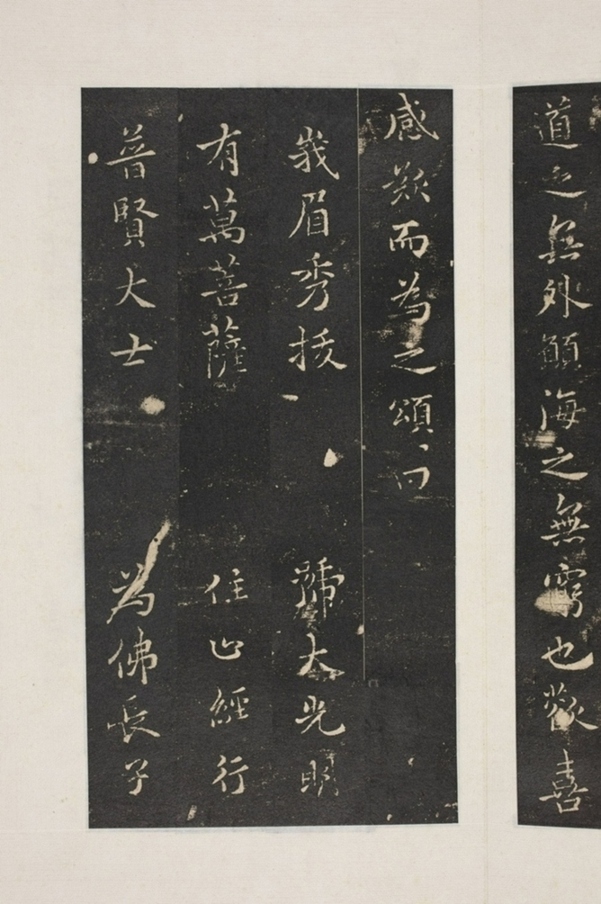 道之無外願海之無窮也歡喜
感歎而為之頌曰
峩眉秀拔 號大光明
有萬菩薩 住山經行
普賢大士 為佛長子